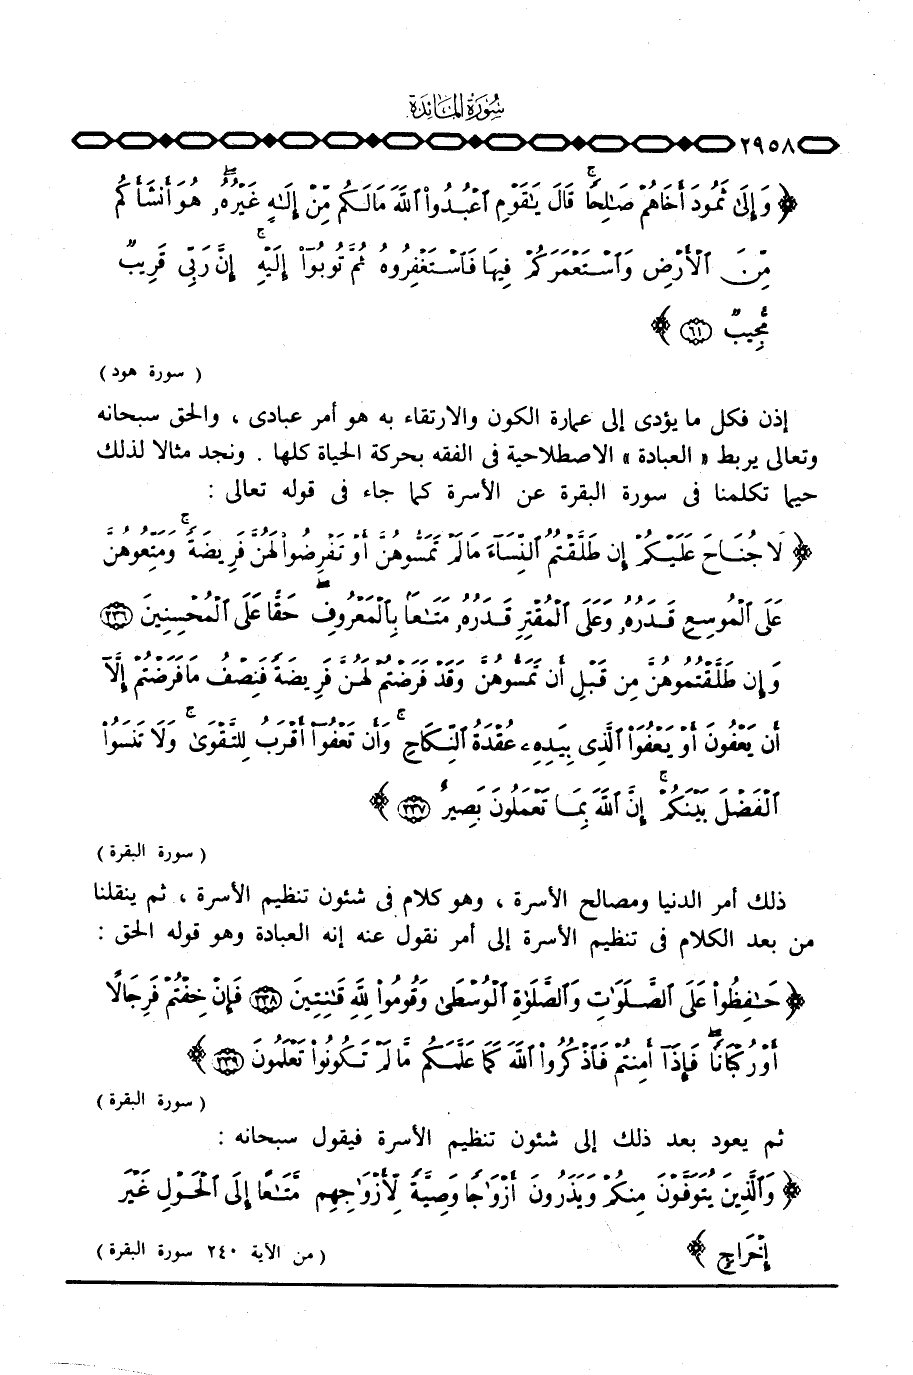 سُورَةُ المَائِدَة
٢٩٥٨
﴿ وَإِلَىٰ ثَمُودَ أَخَاهُمْ صَٰلِحًا ۚ قَالَ يَٰقَوْمِ ٱعْبُدُوا۟ ٱللَّهَ مَالَكُم مِّنْ إِلَٰهٍ غَيْرُهُۥ ۖ هُوَ أَنشَأَكُم
مِّنَ ٱلْأَرْضِ وَٱسْتَعْمَرَكُمْ فِيهَا فَٱسْتَغْفِرُوهُ ثُمَّ تُوبُوٓا۟ إِلَيْهِ ۚ إِنَّ رَبِّى قَرِيبٌ
مُّجِيبٌ ٦١ ﴾
( سورة هود )
إذن فكل ما يؤدى إلى عمارة الكون والارتقاء به هو أمر عبادى ، والحق سبحانه
وتعالى يربط « العبادة » الاصطلاحية فى الفقه بحركة الحياة كلها . ونجد مثالا لذلك
حينما تكلمنا فى سورة البقرة عن الأسرة كما جاء فى قوله تعالى :
﴿ لَا جُنَاحَ عَلَيْكُمْ إِن طَلَّقْتُمُ ٱلنِّسَآءَ مَالَمْ تَمَسُّوهُنَّ أَوْ تَفْرِضُوا۟ لَهُنَّ فَرِيضَةً ۚ وَمَتِّعُوهُنَّ
عَلَى ٱلْمُوسِعِ قَدَرُهُۥ وَعَلَى ٱلْمُقْتِرِ قَدَرُهُۥ مَتَٰعًا بِٱلْمَعْرُوفِ ۖ حَقًّا عَلَى ٱلْمُحْسِنِينَ ٢٣٦
وَإِن طَلَّقْتُمُوهُنَّ مِن قَبْلِ أَن تَمَسُّوهُنَّ وَقَدْ فَرَضْتُمْ لَهُنَّ فَرِيضَةً فَنِصْفُ مَا فَرَضْتُمْ إِلَّآ
أَن يَعْفُونَ أَوْ يَعْفُوَا۟ ٱلَّذِى بِيَدِهِۦ عُقْدَةُ ٱلنِّكَاحِ ۚ وَأَن تَعْفُوٓا۟ أَقْرَبُ لِلتَّقْوَىٰ ۚ وَلَا تَنسَوُا۟
ٱلْفَضْلَ بَيْنَكُمْ ۚ إِنَّ ٱللَّهَ بِمَا تَعْمَلُونَ بَصِيرٌ ٢٣٧ ﴾
( سورة البقرة )
ذلك أمر الدنيا ومصالح الأسرة ، وهو كلام فى شئون تنظيم الأسرة ، ثم ينقلنا
من بعد الكلام فى تنظيم الأسرة إلى أمر نقول عنه إنه العبادة وهو قوله الحق :
﴿ حَٰفِظُوا۟ عَلَى ٱلصَّلَوَٰتِ وَٱلصَّلَوٰةِ ٱلْوُسْطَىٰ وَقُومُوا۟ لِلَّهِ قَٰنِتِينَ ٢٣٨ فَإِنْ خِفْتُمْ فَرِجَالًا
أَوْ رُكْبَانًا ۖ فَإِذَآ أَمِنتُمْ فَٱذْكُرُوا۟ ٱللَّهَ كَمَا عَلَّمَكُم مَّا لَمْ تَكُونُوا۟ تَعْلَمُونَ ٢٣٩ ﴾
( سورة البقرة )
ثم يعود بعد ذلك إلى شئون تنظيم الأسرة فيقول سبحانه :
﴿ وَٱلَّذِينَ يُتَوَفَّوْنَ مِنكُمْ وَيَذَرُونَ أَزْوَٰجًا وَصِيَّةً لِّأَزْوَٰجِهِم مَّتَٰعًا إِلَى ٱلْحَوْلِ غَيْرَ
إِخْرَاجٍ ﴾
( من الآية ٢٤٠ سورة البقرة )